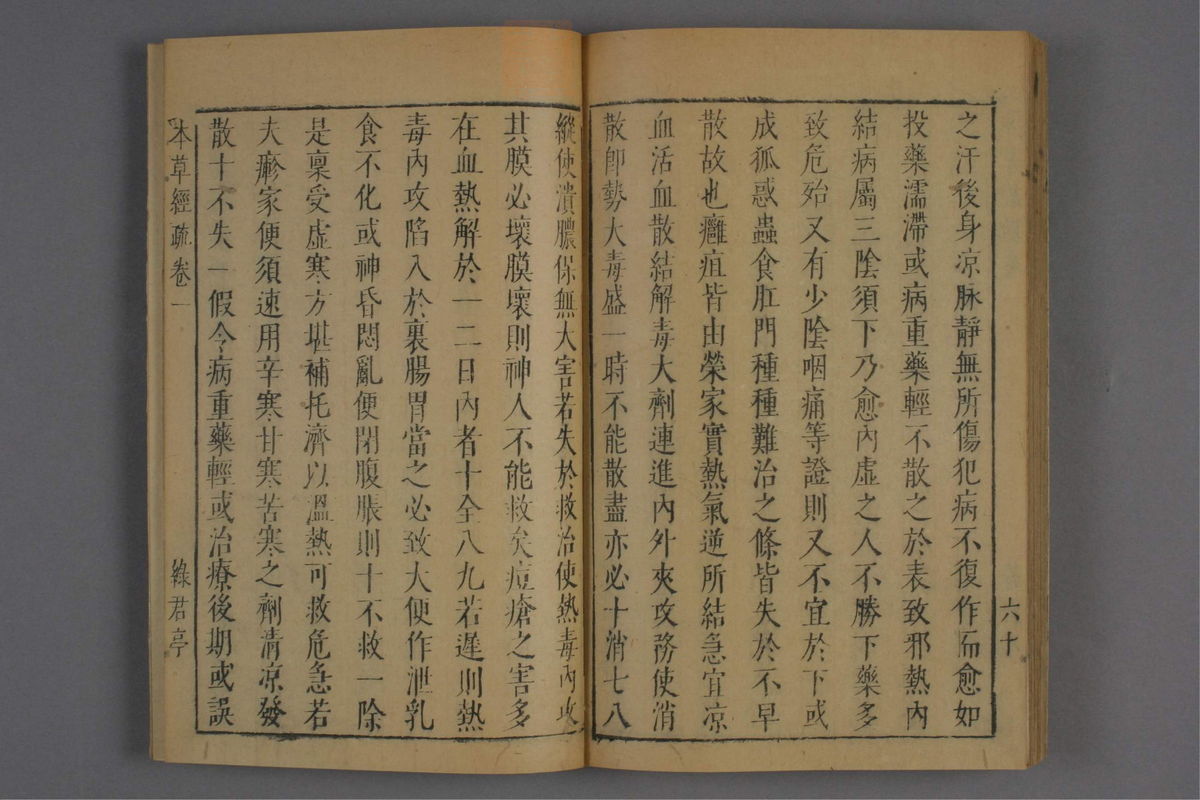 六十
之汗後身凉脉靜無所傷犯病不復作而愈如
投藥濡滯或病重藥輕不散之於表致邪熱內
結病屬三陰須下乃愈內虛之人不勝下藥多
致危殆又有少陰咽痛等證則又不宜於下或
成狐惑蟲食肛門種種難治之條皆失於不早
散故也癰疽皆由榮家實熱氣逆所結急宜凉
血活血散結解毒大劑連進內外夾攻務使消
散卽勢大毒盛一時不能散盡亦必十消七八
縱使潰膿保無大害若失於救治使熱毒內攻
其膜必壞膜壞則神人不能救矣痘瘡之害多
在血熱解於一二日內者十全八九若遲則熱
毒內攻陷入於裏腸胃當之必致大便作泄乳
食不化或神昏悶亂便閉腹脹則十不救一除
是稟受虛寒方堪補托濟以溫熱可救危急若
夫瘮家便須速用辛寒甘寒苦寒之劑清凉發
散十不失一假令病重藥輕或治療後期或誤
本草經疏 卷一
綠君亭